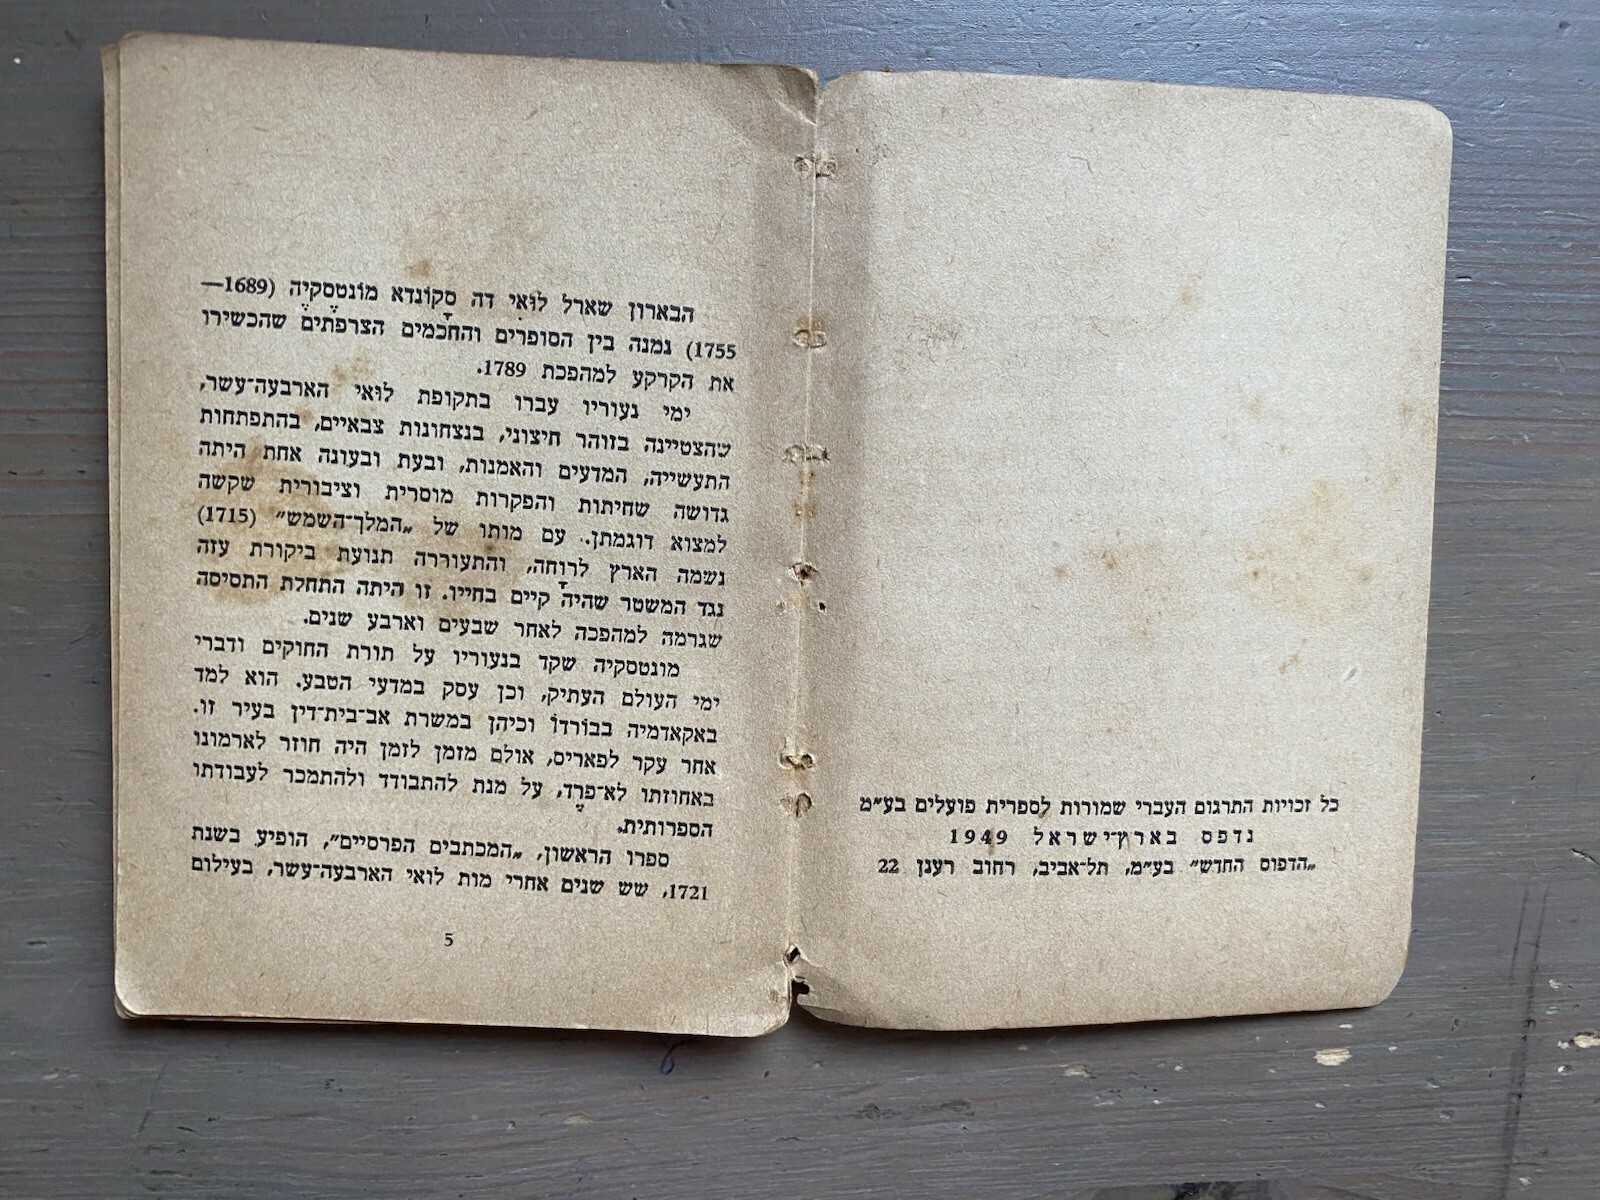 כל זכויות התרגום העברי שמורות לספרית פועלים בע״מ
נדפס בארץ־ישראל 1949
„הדפוס החדש״ בע״מ, תל־אביב, רחוב רענן 22
הבארון שארל לוּאִי דה סקוֹנדא מוֹנטֶסקיֶה (1689—
1755) נמנה בין הסופרים והחכמים הצרפתים שהכשירו
את הקרקע למהפכת 1789.
ימי נעוריו עברו בתקופת לוּאי הארבעה־עשר,
שהצטיינה בזוהר חיצוני, בנצחונות צבאיים, בהתפתחות
התעשייה, המדעים והאמנות, ובעת ובעונה אחת היתה
גדושה שחיתות והפקרות מוסרית וציבורית שקשה
למצוא דוגמתן. עם מותו של „המלך־השמש״ (1715)
נשמה הארץ לרוָחה, והתעוררה תנועת ביקורת עזה
נגד המשטר שהיה קיים בחייו. זו היתה התחלת התסיסה
שגרמה למהפכה לאחר שבעים וארבע שנים.
מונטסקיה שקד בנעוריו על תורת החוקים ודברי
ימי העולם העתיק, וכן עסק במדעי הטבע. הוא למד
באקאדמיה בבוֹרדוֹ וכיהן במשרת אב־בית־דין בעיר זו.
אחר עקר לפאריס, אולם מזמן לזמן היה חוזר לארמונו
באחוזתו לא־פרֶד, על מנת להתבודד ולהתמכר לעבודתו
הספרותית.
ספרו הראשון, „המכתבים הפרסיים״, הופיע בשנת
1721, שש שנים אחרי מות לואי הארבעה־עשר, בעילום
5